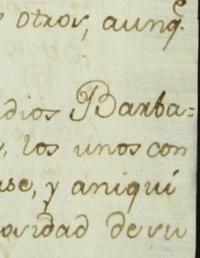 otros, aunq.e
dios Barba=
, los unos con
se, y aniqui
vidad de su